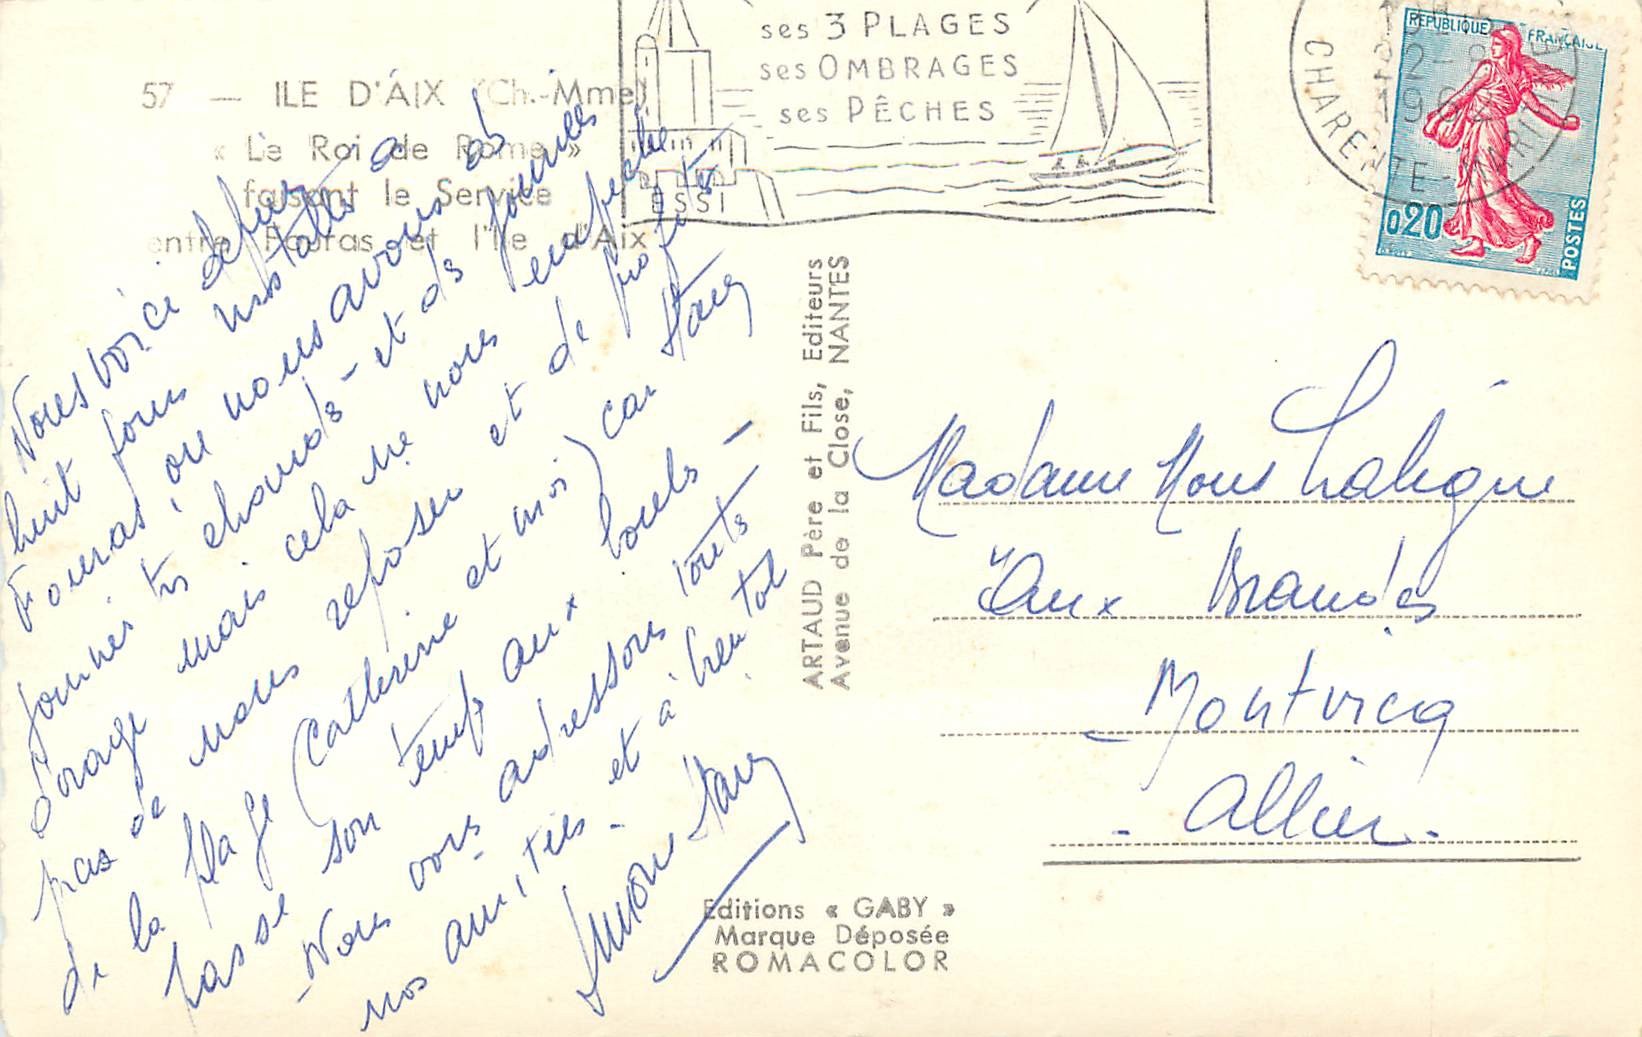 57 — ILE D'AIX (Ch.-Mme)
« Le Roi de Rome »
faisant le Service
entre Fouras et l'Ile d'Aix
ses 3 PLAGES
ses OMBRAGES
ses PÊCHES
CHARENTE-MARITIME
REPUBLIQUE FRANÇAISE
0,20
POSTES
Nous voici depuis
huit jours installés à
Fouras où nous avons ds
journées très chaudes - et ds journées
d'orage mais cela ne nous empêche
pas de nous reposer et de profiter
de la plage (Catherine et moi) car Stany
passe son temps aux boules -
- Nous vous adressons toutes
nos amitiés - et à bientôt
Simone Stany
ARTAUD Père et Fils, Editeurs
Avenue de la Close, NANTES
Editions « GABY »
Marque Déposée
ROMACOLOR
Madame
"Aux Brandes
Montvicq
- Allier -